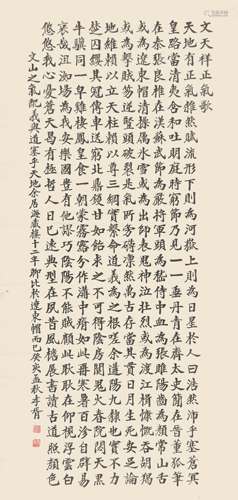 文天祥正氣歌
天地有正氣雜然賦流形下則為河嶽上則為日星於人曰浩然沛乎塞蒼冥
皇路當清夷含和吐明庭時窮節乃見一一垂丹青在齊太史簡在晉董狐筆
在秦張良椎在漢蘇武節為嚴將軍頭為嵇侍中血為張睢陽齒為顏常山舌
或為遼東帽清操厲冰雪或為出師表鬼神泣壯烈或為渡江楫慷慨吞胡羯
或為擊賊笏逆豎頭破裂是氣所旁礴凜然萬古存當其貫日月生死安足論
地維賴以立天柱賴以尊三綱實繫命道義為之根嗟余遘陽九隸也實不力
楚囚纓其冠傳車送窮北鼎鑊甘如飴求之不可得陰房闃鬼火春院閟天黑
牛驥同一皁雞棲鳳凰食一朝蒙霧露分作溝中瘠如此再寒暑百沴自辟易
哀哉沮洳場為我安樂國豈有他謬巧陰陽不能賊顧此耿耿在仰視浮雲白
悠悠我心憂蒼天曷有極哲人日已遠典型在夙昔風簷展書讀古道照顏色
文山之氣配義與道塞乎天地余居海藏樓十二年聊比於遼東帽而已癸亥孟秋孝胥